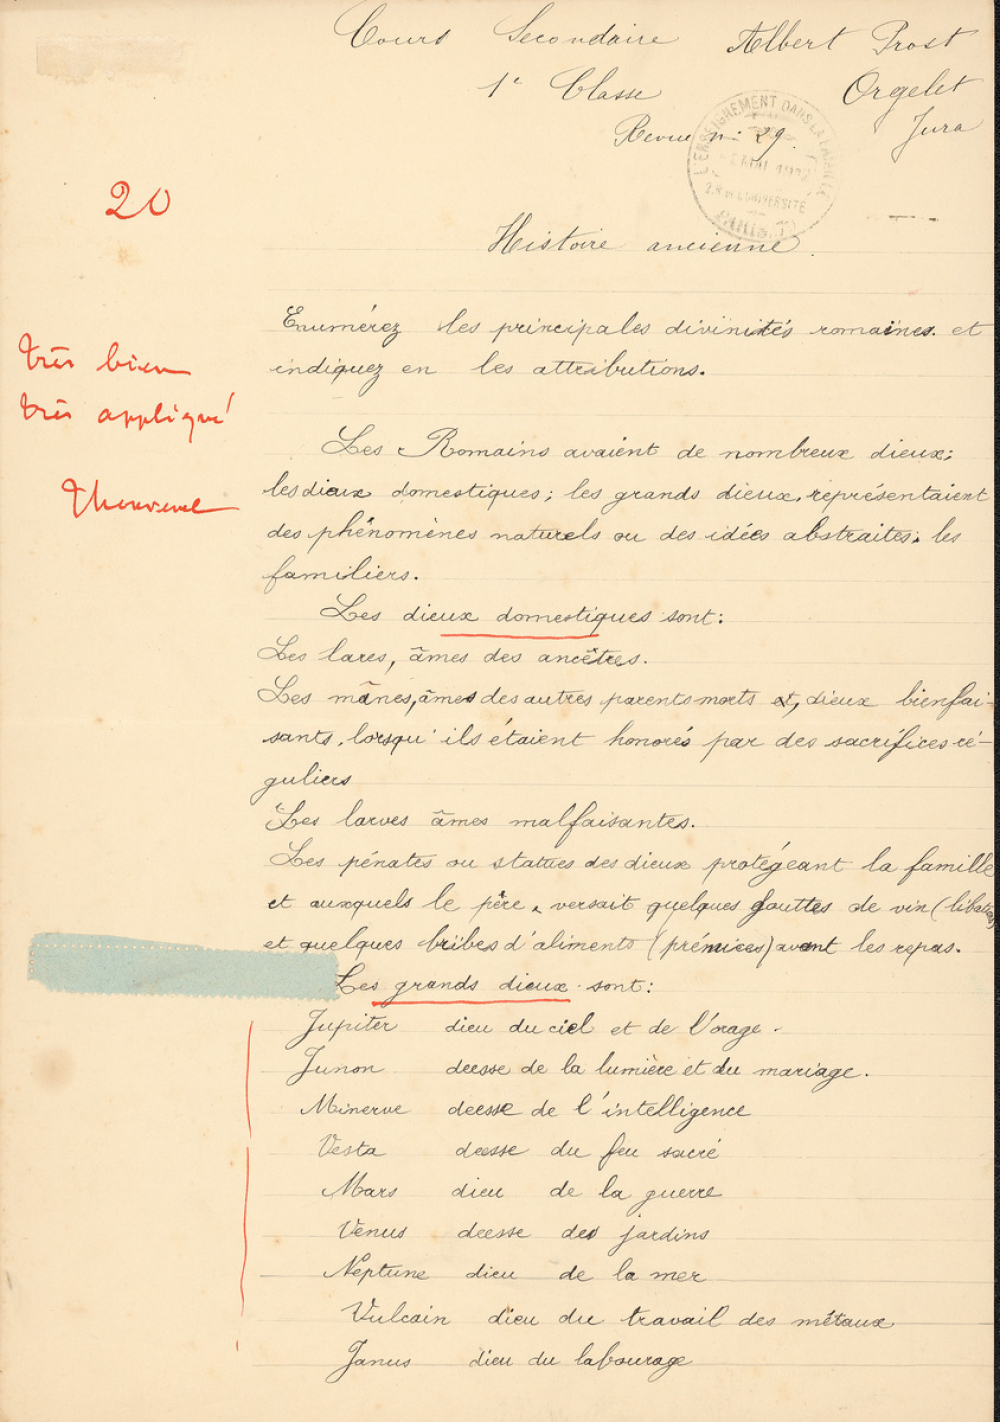 Cours Secondaire Albert Prost
1e Classe Orgelet
Revue n: 29. Jura
L'ENSEIGNEMENT DANS LA FAMILLE
MAI
2, R. DE L'UNIVERSITÉ
PARIS.
20
Histoire ancienne.
Enumérez les principales divinités romaines. et
indiquez en les attributions.
très bien
très appliqué
Les Romains avaient de nombreux dieux;
les dieux domestiques; les grands dieux, représentaient
des phénomènes naturels ou des idées abstraites; les
familiers.
Les dieux domestiques sont:
Les lares, âmes des ancêtres.
Les mânes, âmes des autres parents morts et, dieux bienfai-
sants, lorsqu'ils étaient honorés par des sacrifices ré-
guliers
Les larves âmes malfaisantes.
Les pénates ou statues des dieux protégeant la famille
et auxquels le père versait quelques gouttes de vin (
et quelques bribes d'aliments (prémices) avant les repas.
Les grands dieux sont:
Jupiter dieu du ciel et de l'orage.
Junon deesse de la lumière et du mariage.
Minerve deesse de l'intelligence
Vesta deesse du feu sacré
Mars dieu de la guerre
Vénus deesse des jardins
Neptune dieu de la mer
Vulcain dieu du travail des métaux
Janus dieu du labourage